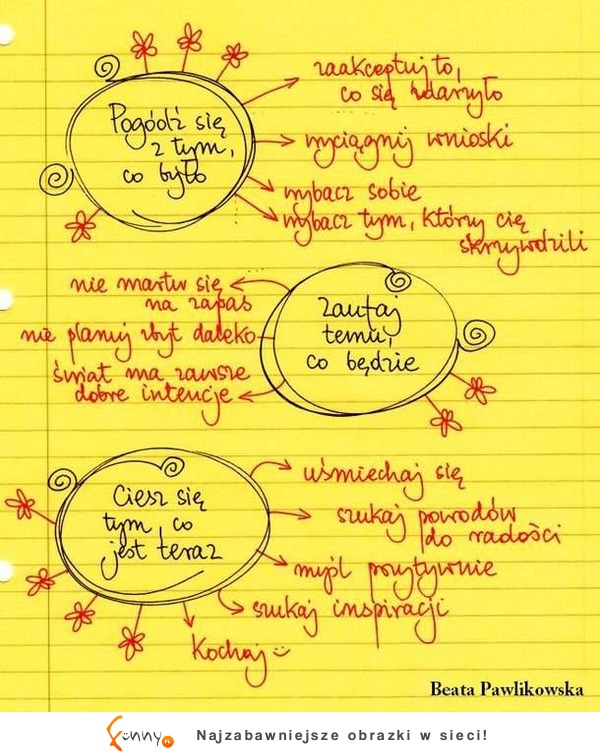 Pogódź się
z tym,
co było
zaakceptuj to,
co się zdarzyło
wyciągnij wnioski
wybacz sobie
wybacz tym, którzy cię
skrzywdzili
Zaufaj
temu,
co będzie
nie martw się
na zapas
nie planuj zbyt daleko
świat ma zawsze
dobre intencje
Ciesz się
tym, co
jest teraz
uśmiechaj się
szukaj powodów
do radości
myśl pozytywnie
szukaj inspiracji
Kochaj
Beata Pawlikowska
funny.pl
Najzabawniejsze obrazki w sieci!